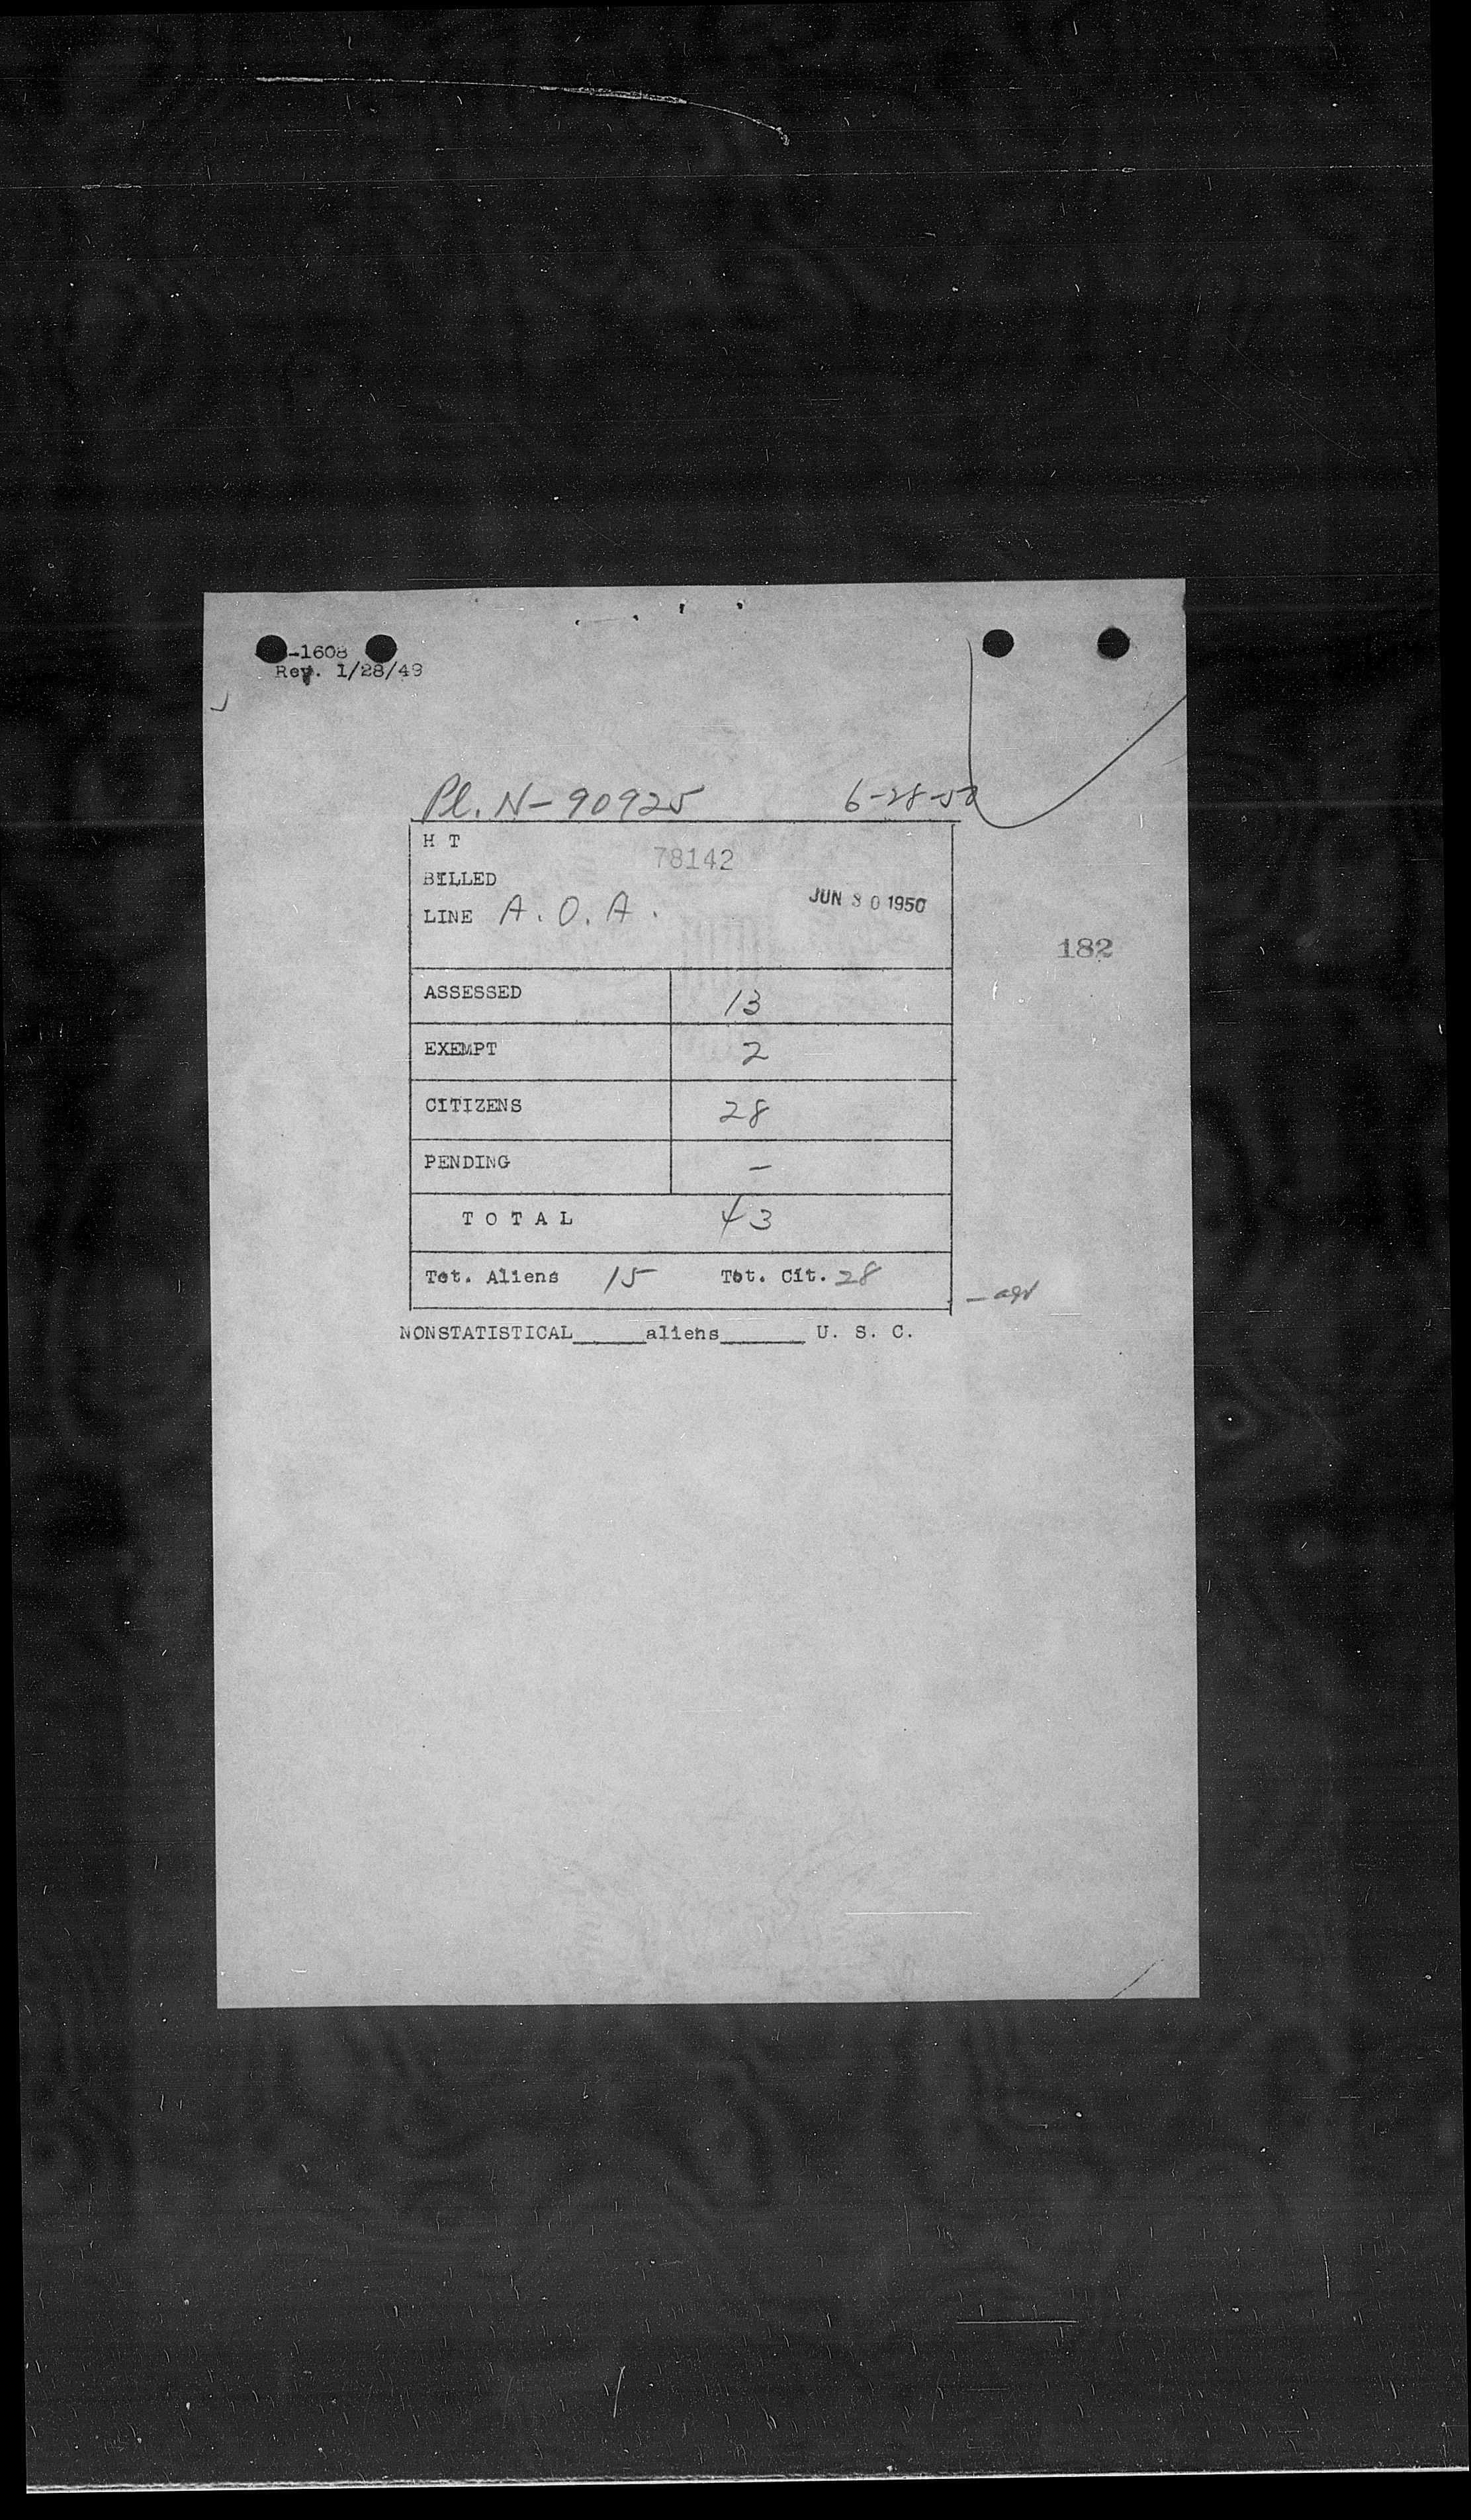 -1608
Rev. 1/28/49
Pl. N-90925 6-28-50
H T
78142
BILLED
JUN 30 1950
LINE A. O. A.
182
ASSESSED 13
EXEMPT 2
CITIZENS 28
PENDING –
T O T A L 43
Tot. Aliens 15 Tot. Cit. 28
NONSTATISTICAL_____aliens______ U. S. C.